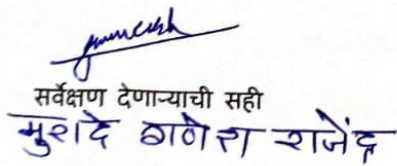 सर्वेक्षण देणाऱ्याची सही
मुरादे गणेश राजेंद्र